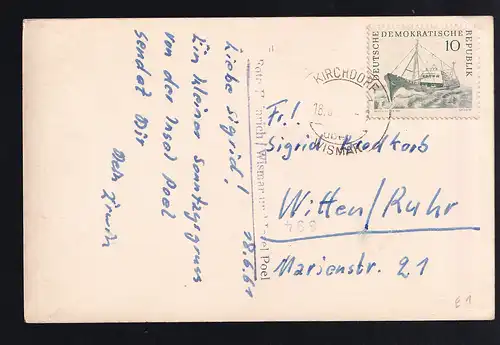 Liebe Sigrid!
18.6.61
Ein kleiner Sonntagsgruss
von der Insel Poel
sendet Dir
Dein Erwin
Foto Heinrich / Wismar Insel Poel
DEUTSCHE DEMOKRATISCHE REPUBLIK
10
KIRCHDORF
18.6
über
WISMAR
Frl.
Sigrid
Witten/Ruhr
694
Marienstr. 21